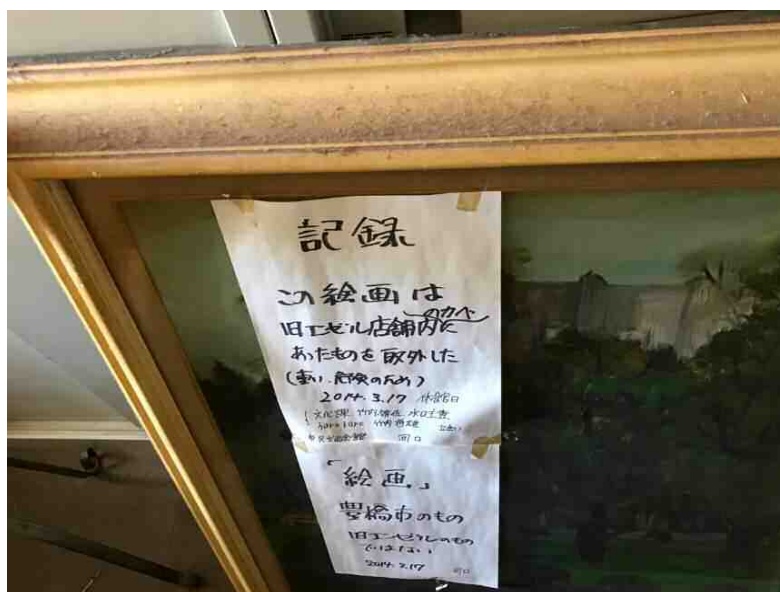 記録
この絵画は
旧エンゼル店舗内のカベに
あったものを取外した
(重い、危険のため)
2014.3.17 休館日
文化課
「絵画」
豊橋市のもの
旧エンゼルのもの
ではない
2014.3.17